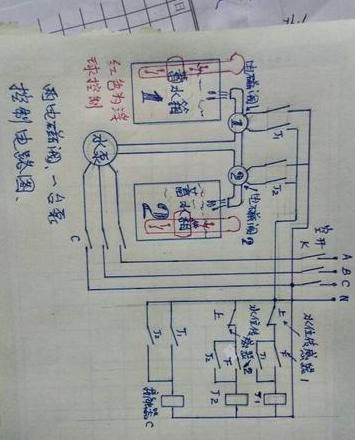 两电磁阀、一台泵
控制电路图、
红色为浮
球控制
蓄水箱
1
电磁阀1
1
J1
水泵
2
J2
蓄水箱
2
电磁阀2
C
空开
K
A
B
C
N
水位传感器1
上
下
水位传感器2
上
下
J1
J2
J1
J2
J2
J1
接触器C